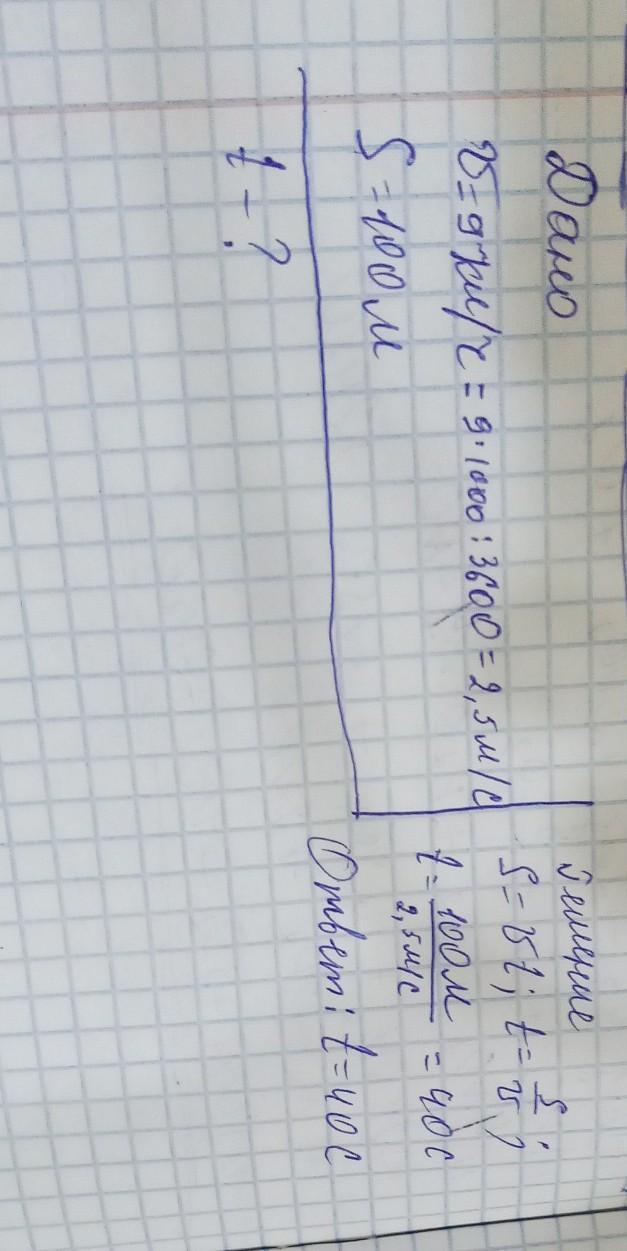 Дано
v = 9 км/ч = 9·1000 : 3600 = 2,5 м/с
S = 100 м
t - ?
Решение
S = vt; t = S/v;
t = 100м/2,5м/с = 40с
Ответ: t = 40с